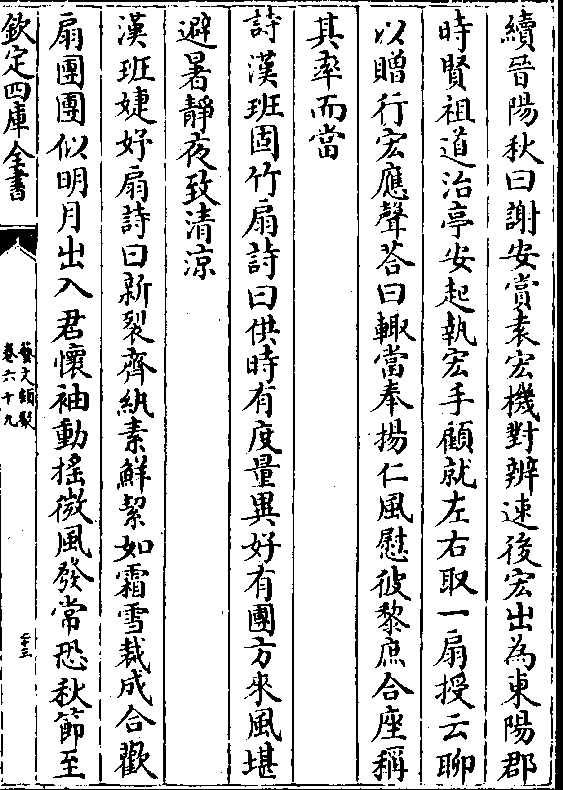 續晉陽秋曰謝安賞袁宏機對辨速後宏出為東陽郡
時賢祖道治亭安起執宏手顧就左右取一扇授云聊
以贈行宏應聲荅曰輙當奉揚仁風慰彼黎庶合座稱
其率而當
詩漢班固竹扇詩曰供時有度量異好有團方來風堪
避暑靜夜致清涼
漢班婕妤扇詩曰新裂齊紈素鮮絜如霜雪裁成合歡
扇團團似明月出入君懷袖動搖微風發常恐秋節至
欽定四庫全書
藝文類聚
卷六十九
二十三